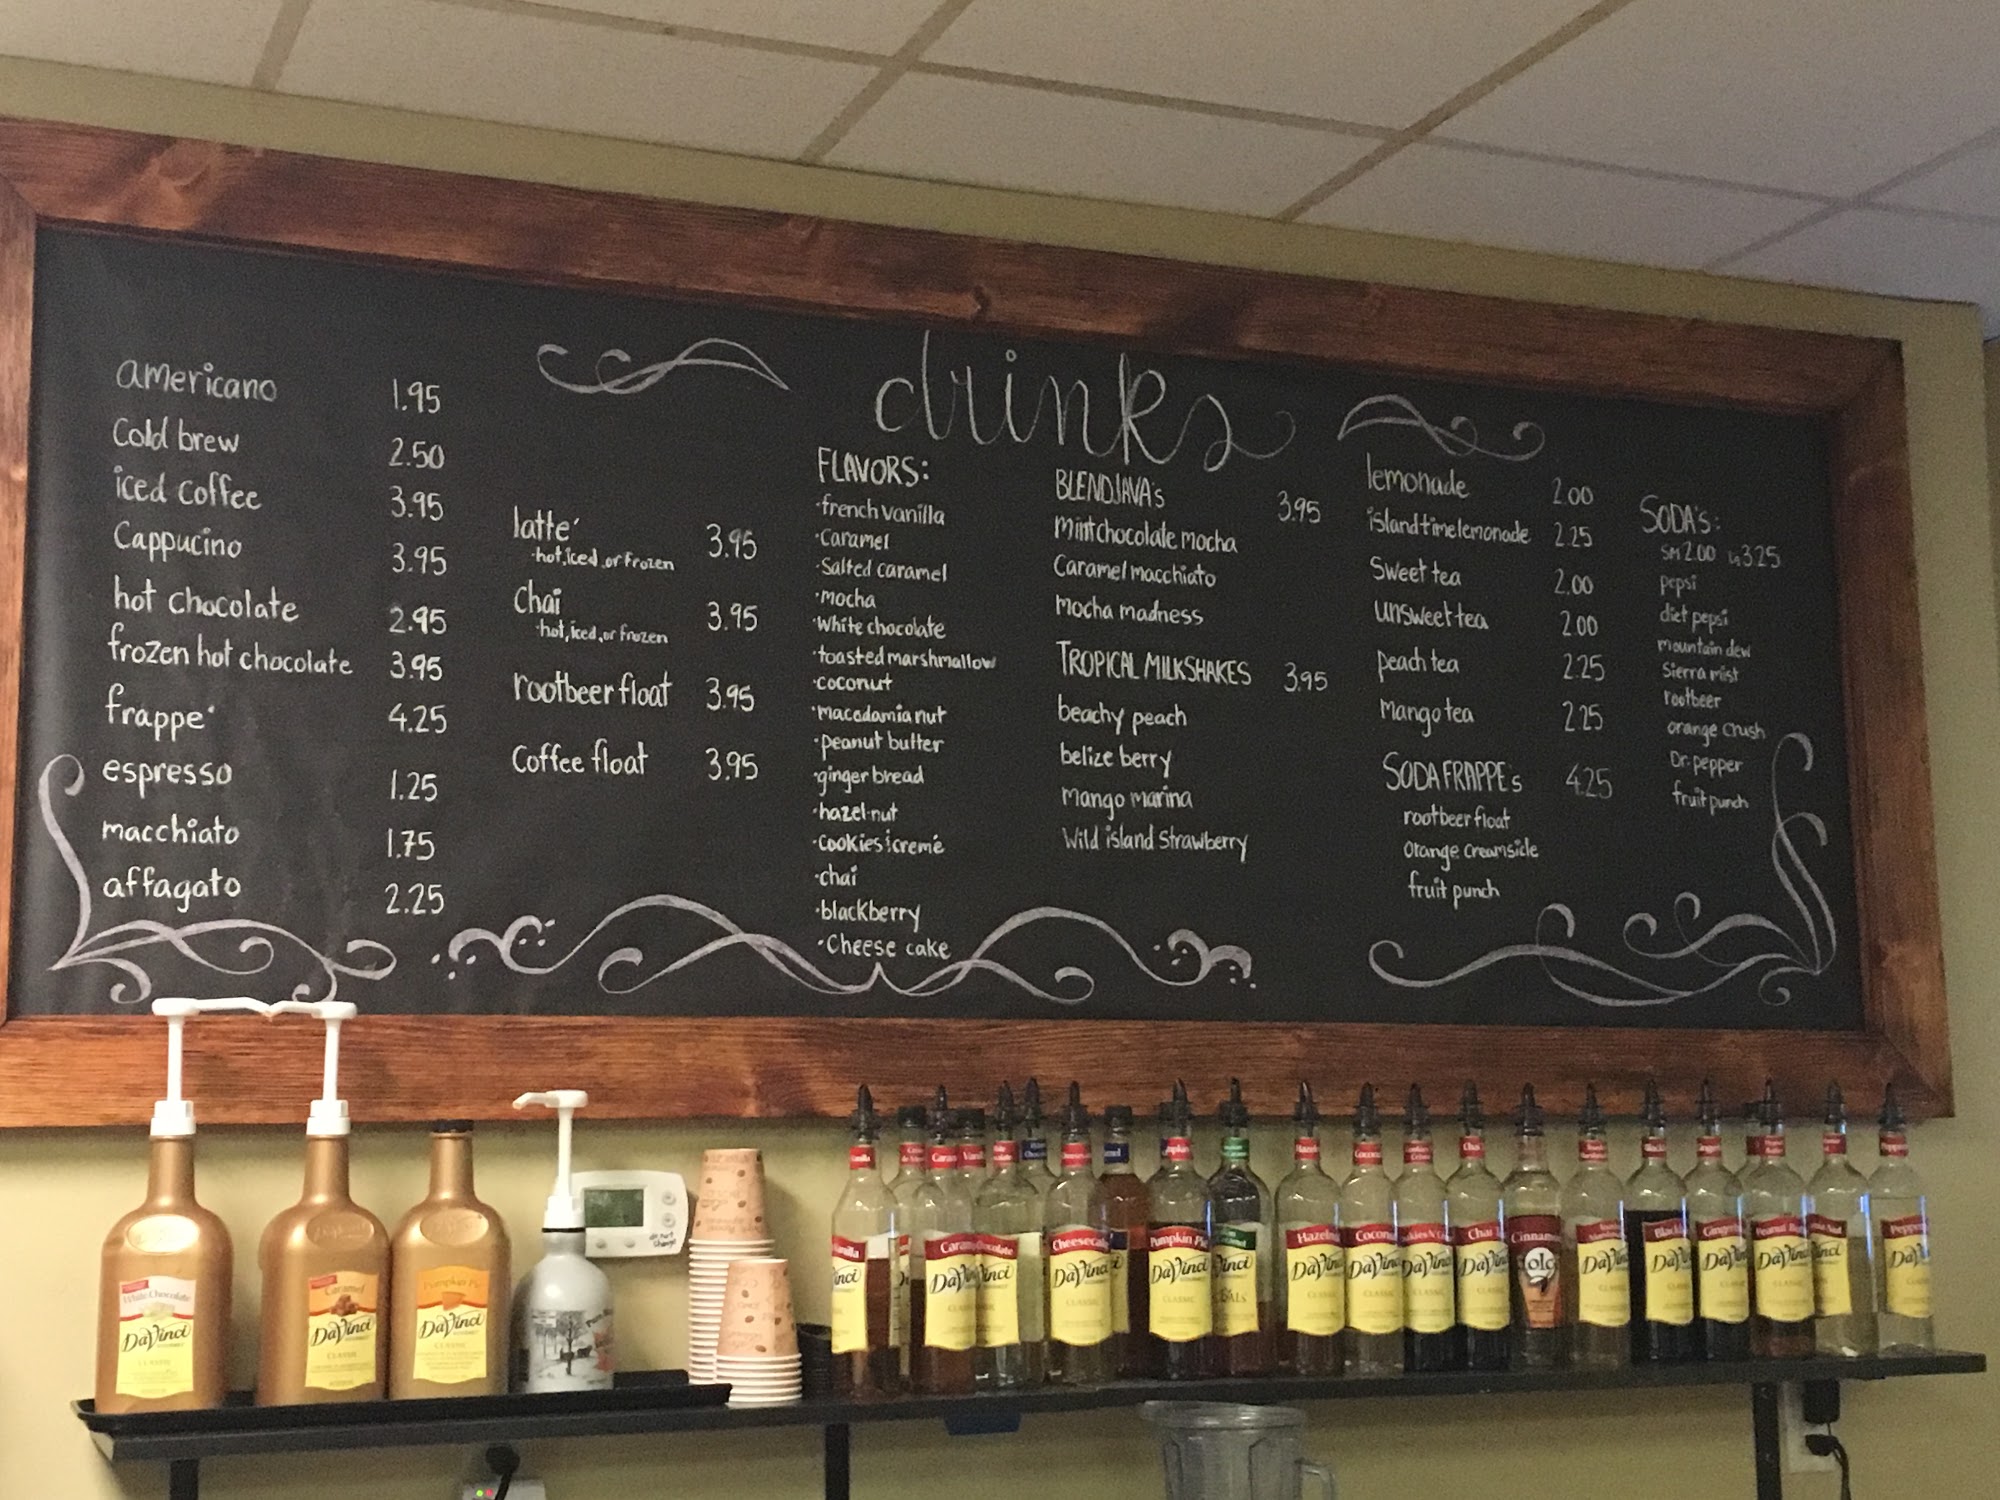 drinks
americano 1.95
Cold brew 2.50
iced coffee 3.95
Cappucino 3.95
hot chocolate 2.95
frozen hot chocolate 3.95
frappe' 4.25
espresso 1.25
macchiato 1.75
affagato 2.25
latte' 3.95
-hot, iced, or frozen
Chai 3.95
-hot, iced, or frozen
rootbeer float 3.95
Coffee float 3.95
FLAVORS:
·french vanilla
·Caramel
·Salted caramel
·mocha
·White chocolate
·toasted marshmallow
·coconut
·macadamia nut
·peanut butter
·ginger bread
·hazel-nut
·Cookies & cremé
·chai
·blackberry
·Cheese cake
BLENDJAVA's 3.95
Mint chocolate mocha
Caramel macchiato
mocha madness
TROPICAL MILKSHAKES 3.95
beachy peach
belize berry
mango marina
Wild island Strawberry
lemonade 2.00
island time lemonade 2.25
Sweet tea 2.00
Unsweet tea 2.00
peach tea 2.25
Mango tea 2.25
SODA FRAPPE's 4.25
rootbeer float
orange creamsicle
fruit punch
SODA'S:
SM 2.00 LG 3.25
pepsi
diet pepsi
mountain dew
Sierra mist
rootbeer
orange crush
Dr. pepper
fruit punch
White Chocolate
DaVinci
GOURMET
CLASSIC
Caramel
DaVinci
GOURMET
CLASSIC
Pumpkin Pie
DaVinci
GOURMET
CLASSIC
do not
change
Pumpkin Pie
DaVinci
CLASSIC